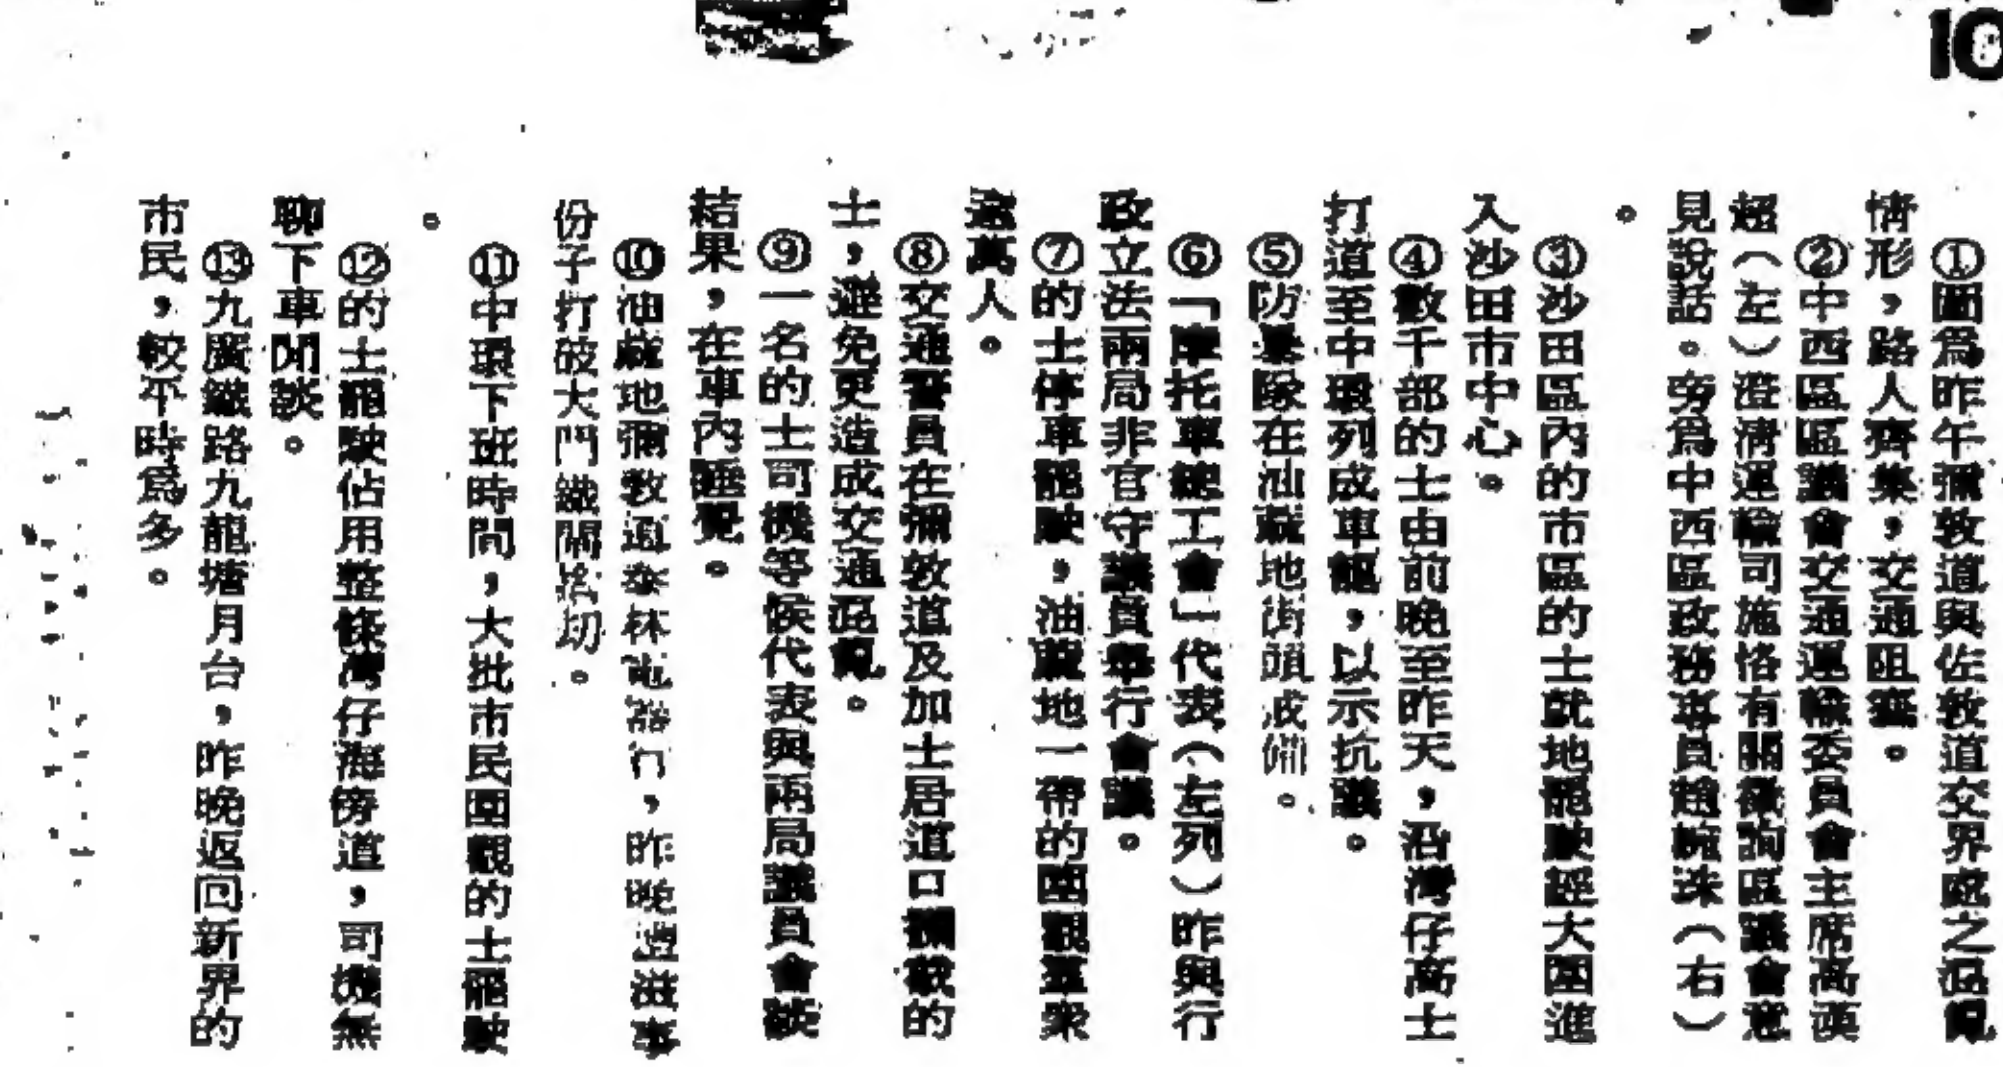 10
①圖爲昨午彌敦道與佐敦道交界處之混亂
情形，路人齊集，交通阻塞。
②中西區區議會交通運輸委員會主席高漢
超（左）澄清運輸司施恪有關徵詢區議會意
見說話。旁爲中西區政務專員趙婉珠（右）
。
③沙田區內的市區的士就地罷駛經大圍進
入沙田市中心。
④數千部的士由前晚至昨天，沿灣仔高士
打道至中環列成車龍，以示抗議。
⑤防暴隊在油蔴地街頭戒備。
⑥「摩托車總工會」代表（左列）昨與行
政立法兩局非官守議員舉行會議。
⑦的士停車罷駛，油蔴地一帶的圍觀羣衆
逾萬人。
⑧交通警員在彌敦道及加士居道口攔截的
士，避免更造成交通混亂。
⑨一名的士司機等候代表與兩局議員會談
結果，在車內睡覺。
⑩油蔴地彌敦道泰林電器行，昨晚遭滋事
份子打破大門鐵閘
⑪中環下班時間，大批市民圍觀的士罷駛
。
⑫的士罷駛佔用整條灣仔海傍道，司機無
聊下車閒談。
⑬九廣鐵路九龍塘月台，昨晚返回新界的
市民，較平時爲多。